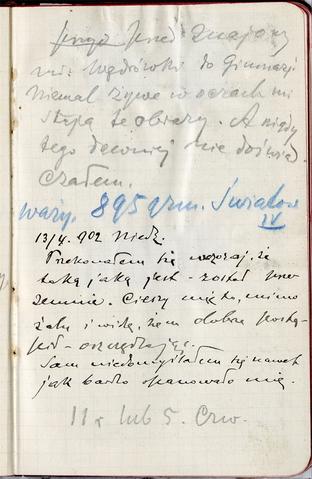 przed znajomy
wędrówki do Gimnazj
Niemal żywe w oczach mi
stoją te obrazy. A nigdy
tego dawniej nie doświad
czałem.
waży. 895 grm. Światow
IV
13/4. 902 Niedz.
Przekonałem się wczoraj, że
taką jaką jest - został prze
zemnie. Cieszy mię to, mimo
żalu i widzę, żem dobrze postą-
pił - oszczędzając.
Sam niedomyślałem się nawet
jak bardzo opanowało mię.
11 lub 5. Czw.